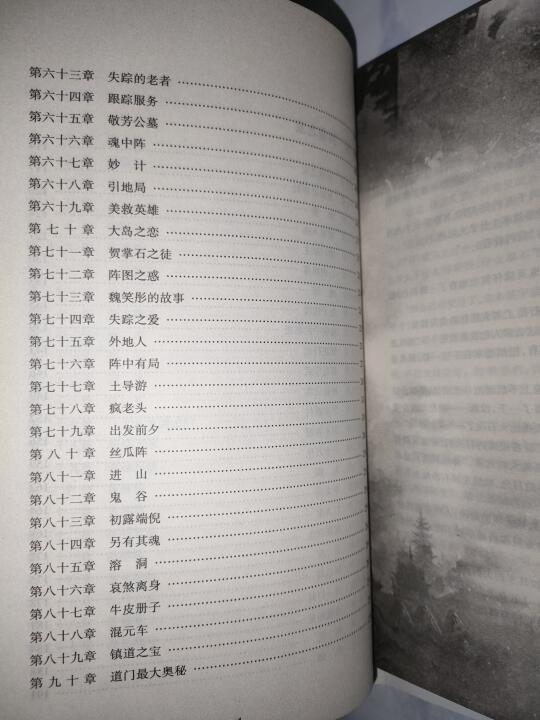 第六十三章 失踪的老者
第六十四章 跟踪服务
第六十五章 敬芳公墓
第六十六章 魂中阵
第六十七章 妙 计
第六十八章 引地局
第六十九章 美救英雄
第七十章 大岛之恋
第七十一章 贺掌石之徒
第七十二章 阵图之惑
第七十三章 魏笑彤的故事
第七十四章 失踪之爱
第七十五章 外地人
第七十六章 阵中有局
第七十七章 土导游
第七十八章 疯老头
第七十九章 出发前夕
第八十章 丝瓜阵
第八十一章 进 山
第八十二章 鬼 谷
第八十三章 初露端倪
第八十四章 另有其魂
第八十五章 溶 洞
第八十六章 哀煞离身
第八十七章 牛皮册子
第八十八章 混元车
第八十九章 镇道之宝
第九十章 道门最大奥秘